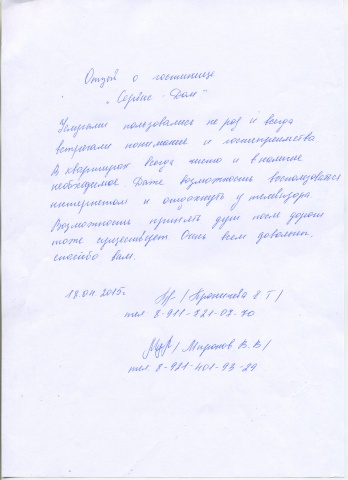 Отзыв о гостинице
„Сервис-Дом"
Услугами пользовались не раз и всегда
встречали понимание и гостеприимство
В квартирах всегда чисто и в наличие
необходимое Даже возможность воспользоваться
интернетом и отдохнуть у телевизора.
Возможность принять душ после дороги
тоже существует. Очень всем довольны.
спасибо вам.
18.04.2015г.
тел 8-911-721-07-70
/Миронов В.В/
тел. 8-921-401-93-29